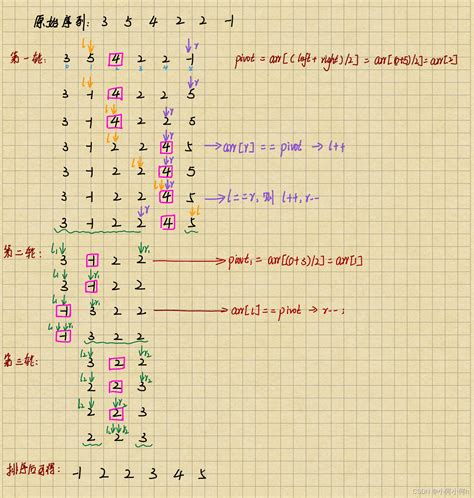 原始序列: 3 5 4 2 2 -1
l r
第一轮: 3 5 4 2 2 -1 pivot = arr[(left+right)/2] = arr[(0+5)/2] = arr[2]
3 -1 4 2 2 5
l r
3 -1 4 2 2 5
l r
3 -1 2 2 4 5 → arr[r] == pivot → l++
l r
3 -1 2 2 4 5
l r
3 -1 2 2 4 5 → l==r, 则 l++, r--
r l
3 -1 2 2 4 5
l₁ r₁
第二轮: 3 -1 2 2 → pivot₁ = arr[(0+3)/2] = arr[1]
l₁ r₁
3 -1 2 2
l₁ r₁
-1 3 2 2 → arr[l] == pivot → r--;
l₁ r₁
-1 3 2 2
l₂ r₂
第三轮: 3 2 2
l₂ r₂
2 2 3
l₂ r₂
2 2 3
2 2 3
排序后可得: -1 2 2 3 4 5